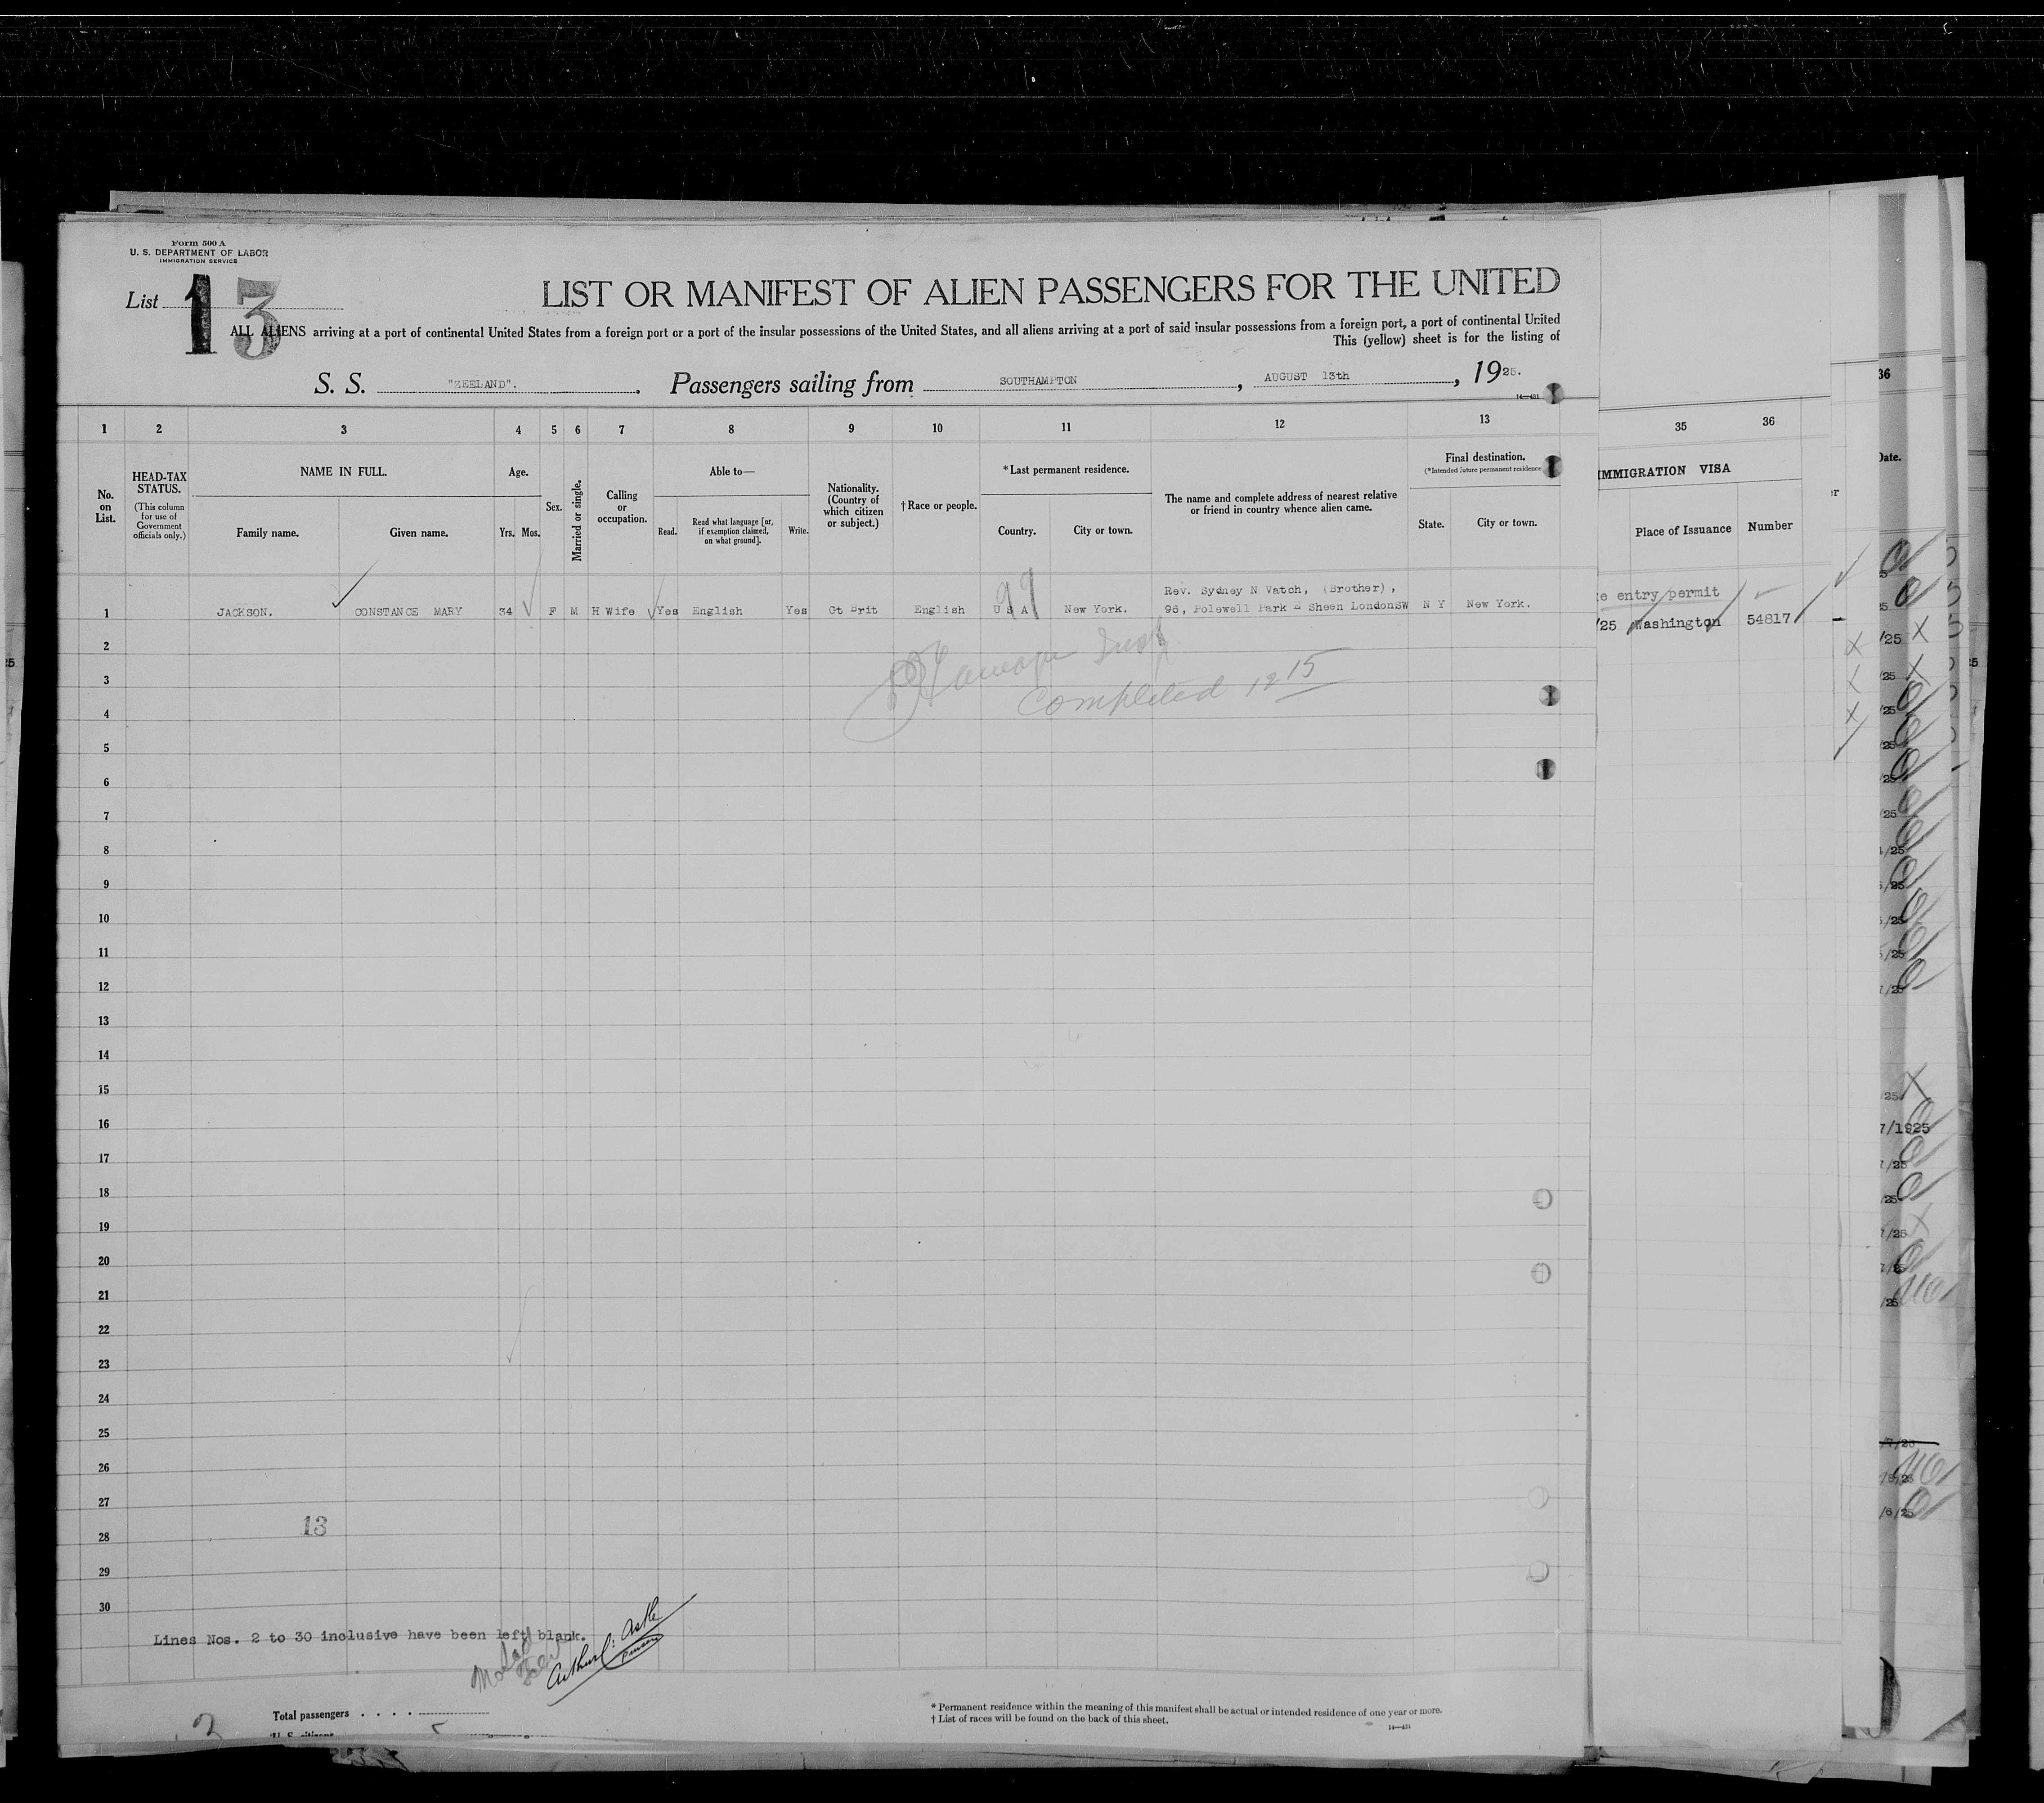 Form 500 A
U. S. DEPARTMENT OF LABOR
IMMIGRATION SERVICE
List 13
LIST OR MANIFEST OF ALIEN PASSENGERS FOR THE UNITED
ALL ALIENS arriving at a port of continental United States from a foreign port or a port of the insular possessions of the United States, and all aliens arriving at a port of said insular possessions from a foreign port, a port of continental United
This (yellow) sheet is for the listing of
S. S. "ZEELAND". Passengers sailing from SOUTHAMPTON, AUGUST 13th, 1925.
14—431
1 2 3 4 5 6 7 8 9 10 11 12 13 35 36
No. on List.
HEAD-TAX STATUS.
(This column for use of Government officials only.)
NAME IN FULL.
Family name. Given name.
Age.
Yrs. Mos.
Sex.
Married or single.
Calling or occupation.
Able to—
Read. Read what language [or, if exemption claimed, on what ground]. Write.
Nationality. (Country of which citizen or subject.)
†Race or people.
*Last permanent residence.
Country. City or town.
The name and complete address of nearest relative or friend in country whence alien came.
Final destination.
(*Intended future permanent residence
State. City or town.
IMMIGRATION VISA
Place of Issuance Number
36
Date.
Rev. Sydney N Vatch, (Brother),
1 JACKSON. CONSTANCE MARY 34 F M H Wife Yes English Yes Gt Brit English U S A New York. 96, Polewell Park E Sheen LondonSW N Y New York.
entry permit
/25 Washington 54817
2
3
Completed 12 15
4
5
6
7
8
9
10
11
12
13
14
15
16
17
18
19
20
21
22
23
24
25
26
27
13
28
29
30
7/1925
Lines Nos. 2 to 30 inclusive have been left blank.
Total passengers . . . .
U. S. citizens
* Permanent residence within the meaning of this manifest shall be actual or intended residence of one year or more.
† List of races will be found on the back of this sheet.
14—431